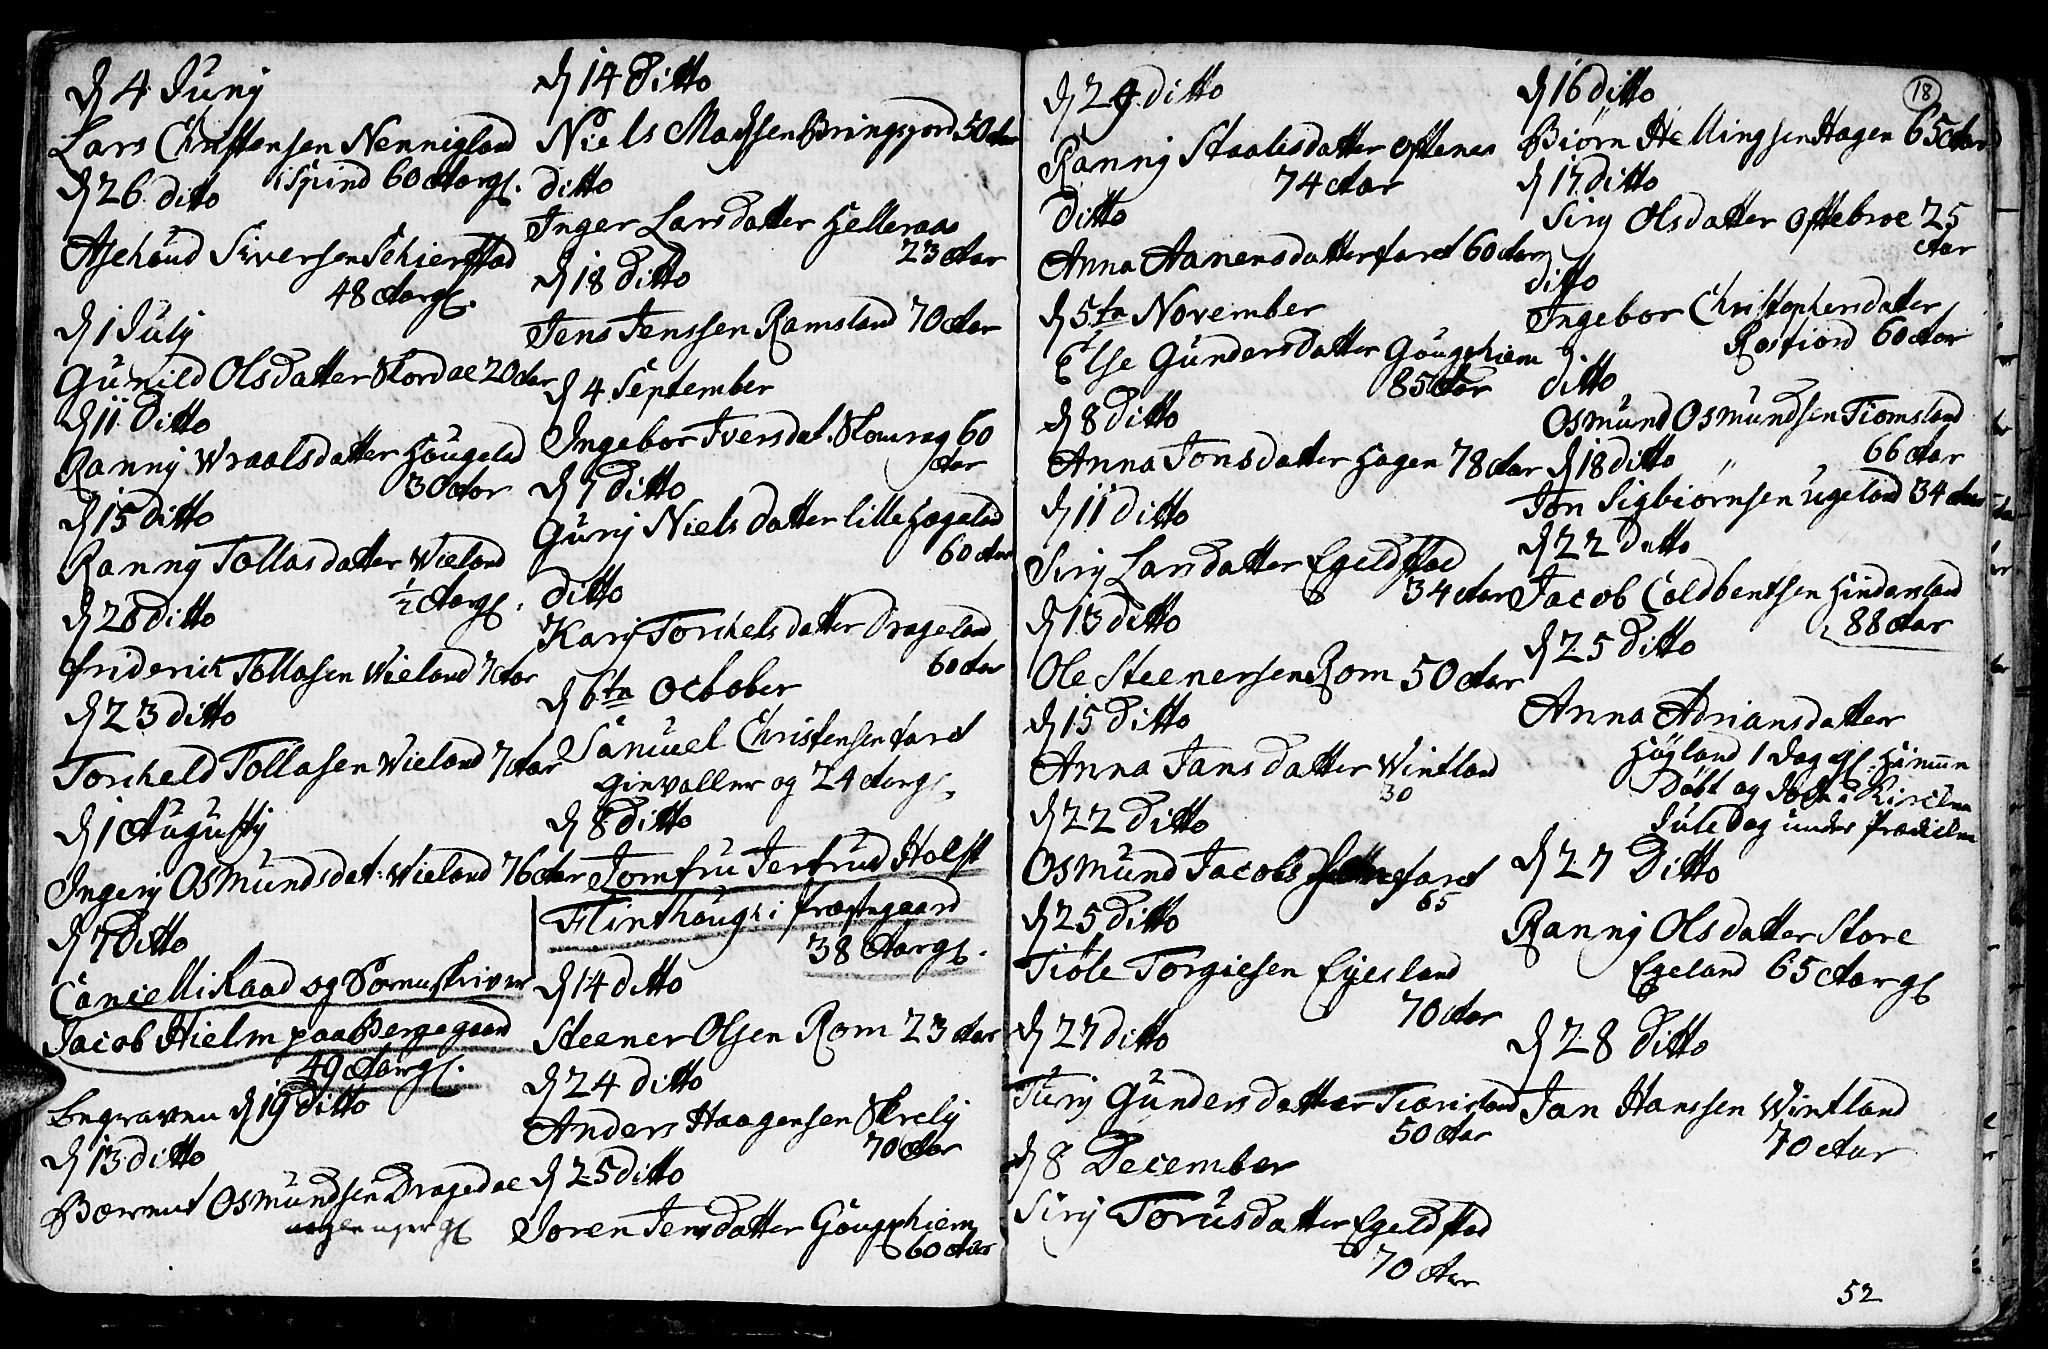 d 4 Junij
Lars Christensen Nennigland
i Spind 60 Aar gl.
d 26 ditto
Asehoud Siversen Schierstad
48 Aar gl.
d 1 Julij
Gunild Olsdatter Skordae 20 Aar
d 11 Ditto
Ranny Wraalsdatter Hougeland
30 Aar
d 15 ditto
Ranny Tollasdatter Wieland
1/2 Aar gl.
d 20 Ditto
Friderich Tollasen Wieland 7 Aar
d 23 ditto
Torcheld Tollasen Wieland 7 Aar
d 1 Augusty
Ingerij Osmundsdat: Wieland 76 Aar
d 7 Ditto
Cancelliraad og Sorenskriver
Jacob Hielm paa Bergegaard
49 Aar gl.
Begraven d 19 Ditto
d 13 ditto
Osmundsen Dragedae
uger gl
d 14 Ditto
Niels Madsen Bringsjord 50 Aar
ditto
Inger Larsdatter Helleraas
23 Aar
d 18 Ditto
Jens Jenssen Ramsland 70 Aar
d 4 September
Ingebor Iversdat. Skourag 60
Aar
d 7 ditto
Gurij Nielsdatter lille Hægeland
60 Aar
ditto
Karij Torchelsdatter Drageland
60 Aar
d 6ta October
Samuel Christensen Faret
og 24 Aar gl.
d 8 Ditto
Jomfru Jertrud Holst
Flinthoug i Præstegaard
38 Aar gl.
d 14 ditto
Steener Olsen Rom 23 Aar
d 24 ditto
Anders Haagensen Skrelij
70 Aar
d 25 ditto
Soren Jensdatter Gougshiem
60 Aar
18
d 24 ditto
Ranny Staalesdatter Oftenes
74 Aar
ditto
Anna Aanensdatter Faret 60 Aar
d 5ta November
Else Gundersdatter Gougshiem
85 Aar
d 8 Ditto
Anna Jonsdatter Hagen 78 Aar
d 11 ditto
Sirij Larsdatter Egeldstad
34 Aar
d 13 ditto
Ole Steenersen Rom 50 Aar
d 15 Ditto
Anna Jansdatter Wintland
30
d 22 Ditto
Osmund Jacobs Faret
65
d 25 ditto
Tiøle Torgiesen Eyesland
70 Aar
d 27 ditto
Turij Gundersdatter Tiorisland
50 Aar
d 8 December
Sirij Torusdatter Egeldstad
70 Aar
d 16 ditto
Biørn Hellingsen Hagen 65 Aar
d 17 ditto
Sirij Olsdatter Oftebroe 25
Aar
ditto
Ingebor Christophersdatter
Rosfiord 60 Aar
ditto
Osmund Osmundsen Tiomsland
66 Aar
d 18 ditto
Jon Sigbiørnsen Ugeland 34 Aar
d 22 ditto
Jacob Coldbentsen Hindarsland
88 Aar
d 25 Ditto
Anna Adriansdatter
Høyland 1 Dag gl. hiemme
Døbt og død i Kirken
Juledag under Prædiken
d 27 Ditto
Ranny Olsdatter Store
Egeland 65 Aar gl
d 28 Ditto
Jan Hanssen Wintland
70 Aar
52